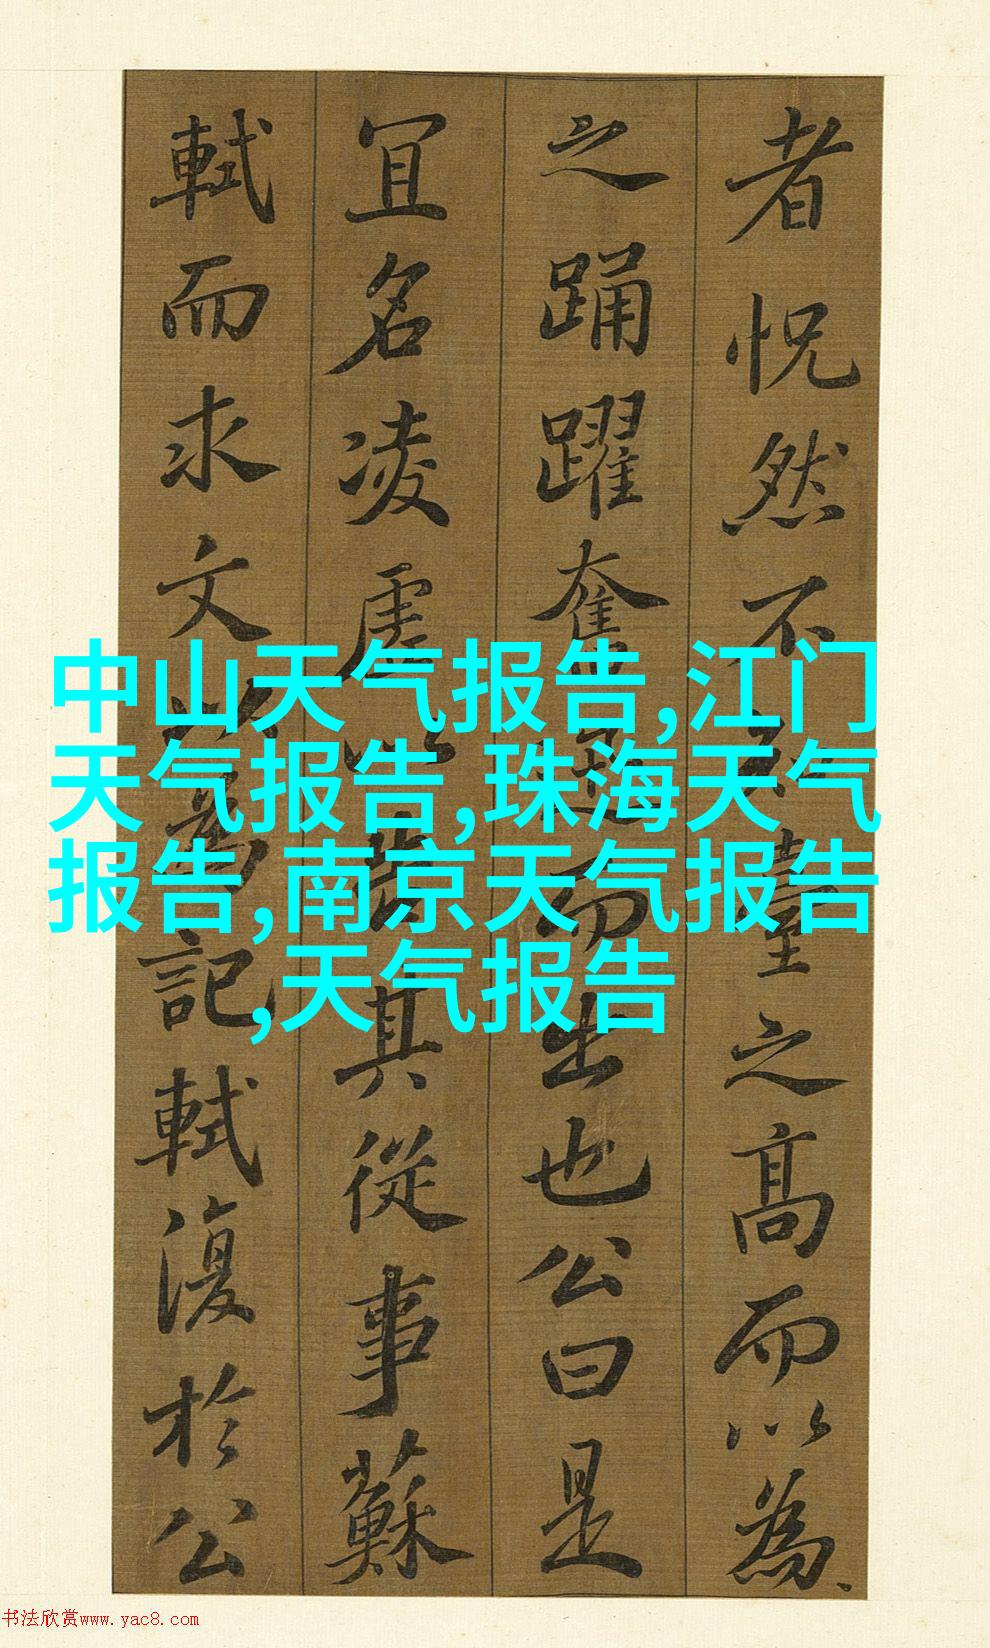 者怳然不知臺之高而以為
之踊躍奮迅而出也公曰是
冝名凌虛以告其從事蘇
軾而求文以為記軾復於公
中山天气报告,江门
天气报告,珠海天气
报告,南京天气报告
,天气报告
书法欣赏www.yac8.com